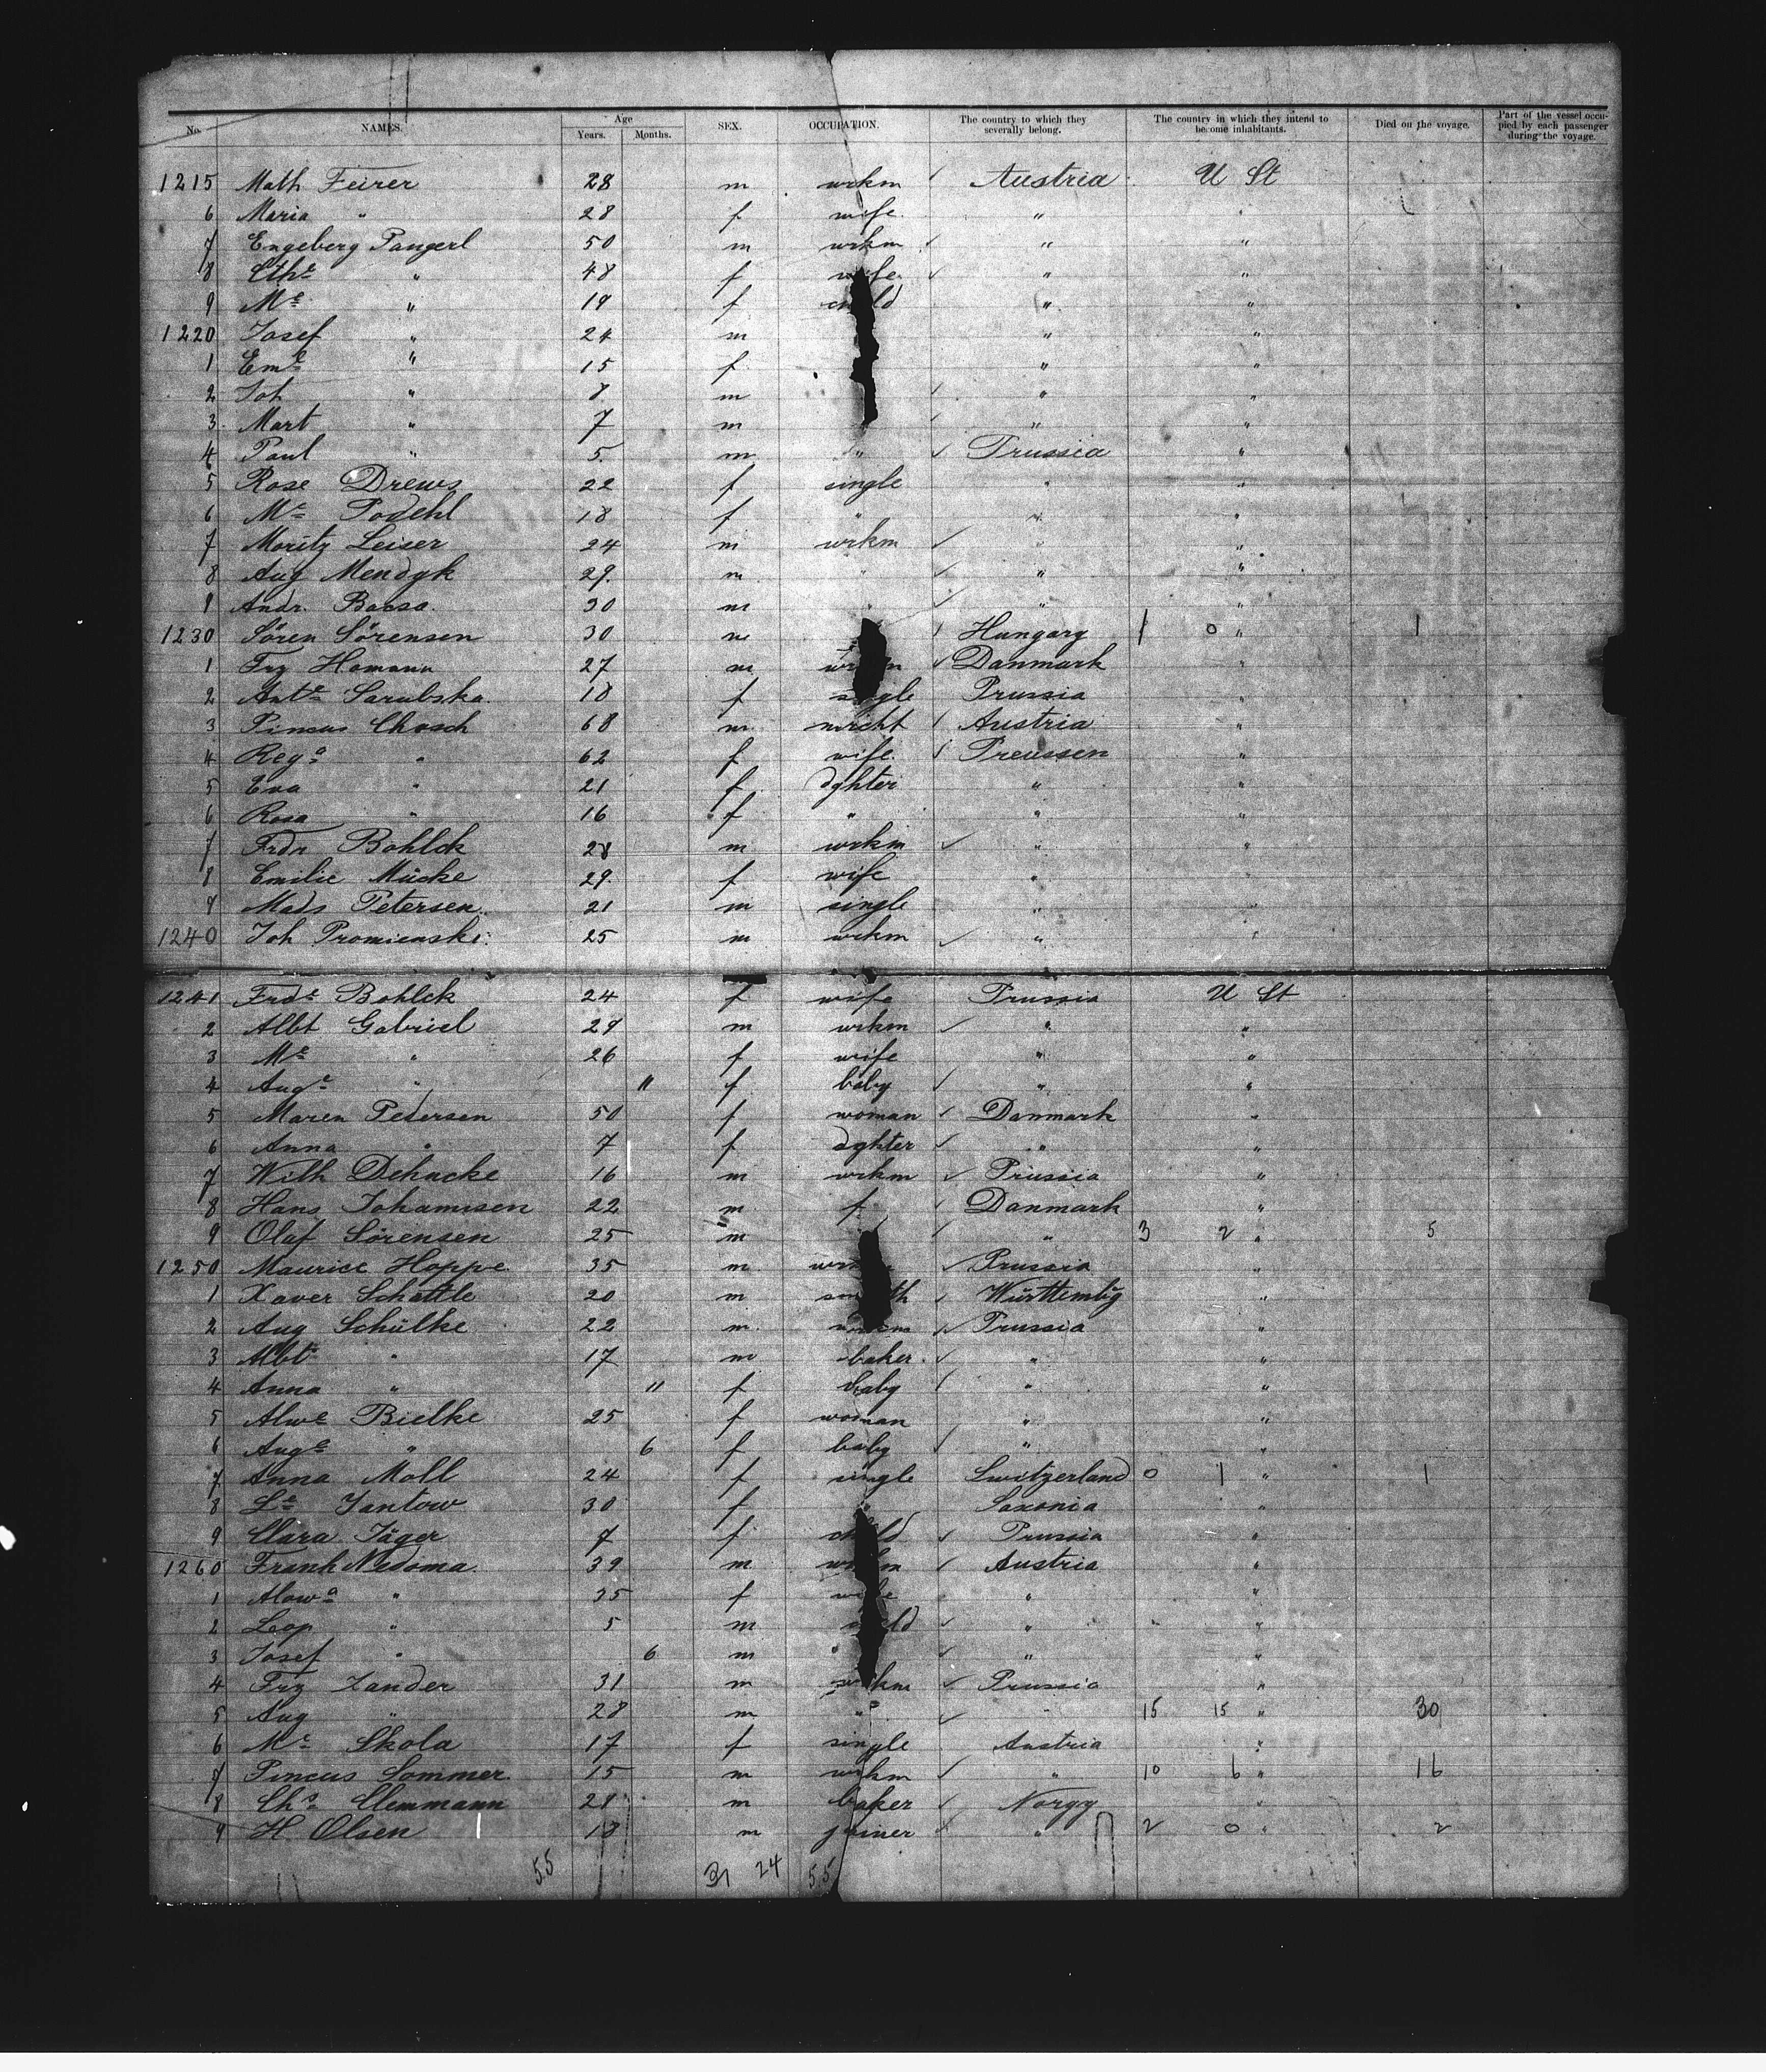 No. NAMES. Age Years. Months. SEX. OCCUPATION. The country to which they severally belong. The country in which they intend to become inhabitants. Died on the voyage. Part of the vessel occupied by each passenger during the voyage.
1215 Math Feirer 28 m wrkm Austria U St
6 Maria " 28 f wife " "
7 Engelberg Pangerl 50 m wrkm " "
8 Cthe " 48 f wife " "
9 Me " 19 f child " "
1220 Josef " 24 m " "
1 Eme " 15 f " "
2 Joh " 8 m " "
3 Mart " 7 m " "
4 Paul " 5 m " Prussia "
5 Rose Drews 22 f single " "
6 Me Podehl 18 f " " "
7 Moritz Leiser 24 m wrkm " "
8 Aug Mendyk 29 m " " "
9 Andr. Bacsa 30 m " " "
1230 Sören Sörensen 30 m Hungary 1 0 " 1
1 Frz Homann 27 m Danmark "
2 Ante Sarubska 18 f single Prussia "
3 Pincus Chosch 68 m mrcht Austria "
4 Rega " 62 f wife Preussen "
5 Eva " 21 f dghter " "
6 Rosa " 16 f " " "
7 Frdr Bohlck 28 m wrkm " "
8 Emilie Mücke 29 f wife " "
9 Mads Petersen 21 m single " "
1240 Joh Promienski 25 m wrkm " "
1241 Frdr Bohlck 24 f wife Prussia U St
2 Albt Gabriel 29 m wrkm " "
3 Me " 26 f wife " "
4 Auge " 11 f baby " "
5 Maren Petersen 50 f woman Danmark "
6 Anna " 7 f dghter " "
7 Wilh Dehncke 16 m wrkm Prussia "
8 Hans Johannsen 22 m f Danmark "
9 Olaf Sörensen 25 m " 3 2 " 5
1250 Maurice Hoppe 35 m Prussia "
1 Xaver Schättle 20 m Württembg "
2 Aug Schülke 22 m Prussia "
3 Albt " 17 m baker " "
4 Anna " 11 f baby " "
5 Alwe Bielke 25 f woman " "
6 Auge " 6 f baby " "
7 Anna Moll 24 f single Switzerland 0 1 " 1
8 Le Jantow 30 f " Saxonia "
9 Clara Jäger 7 f child Prussia "
1260 Frank Nedoma 39 m wrkm Austria "
1 Alowa " 35 f wife " "
2 Leop " 5 m child " "
3 Josef " 6 m " " "
4 Frz Zander 31 m wrkm Prussia "
5 Aug " 28 m " " 15 15 " 30
6 Me Skola 17 f single Austria "
7 Pincus Sommer 15 m wrkm " 10 6 " 16
8 Chs Clemmann 28 m baker Norgy "
9 H Olsen 18 m joiner " 2 0 " 2
55 31 24 55